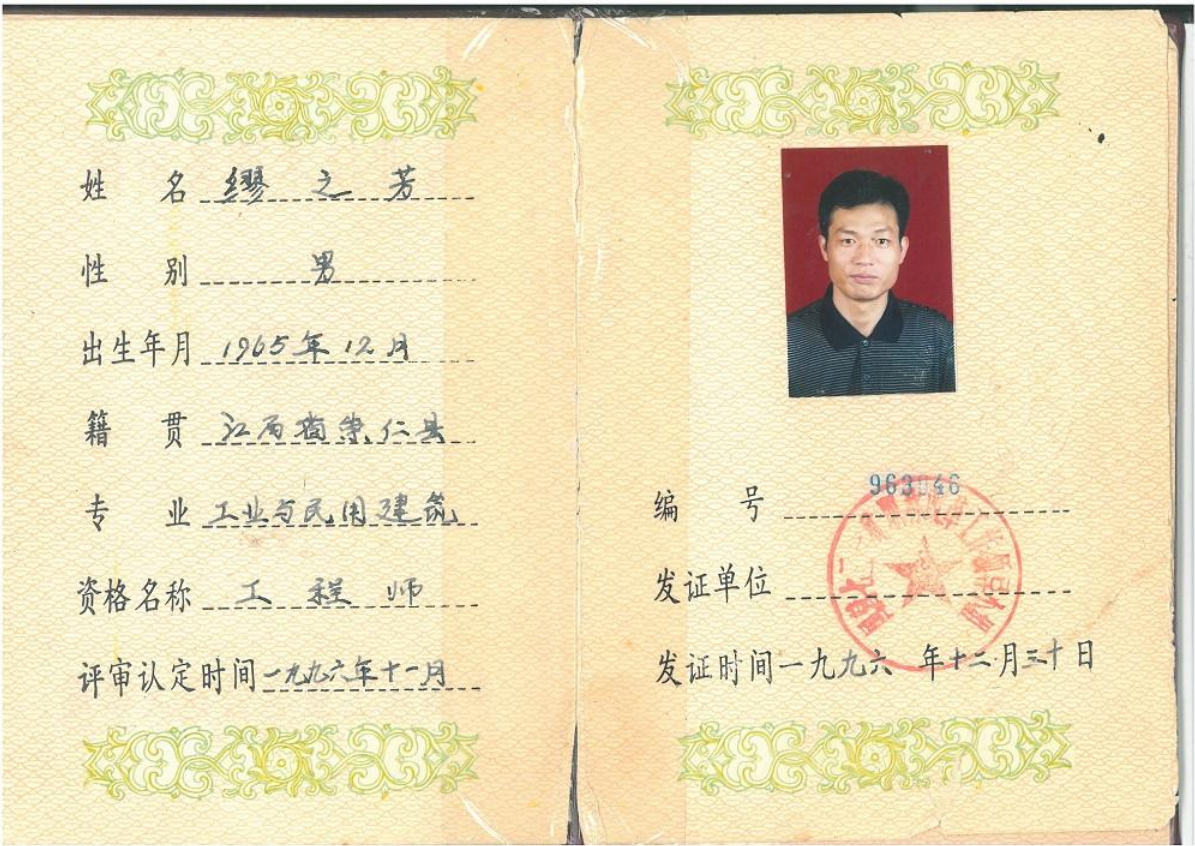 姓名 缪之芳
性别 男
出生年月 1965年12月
籍贯 江西省崇仁县
专业 工业与民用建筑
资格名称 工程师
评审认定时间 一九九六年十一月
编号 963046
发证单位
发证时间 一九九六年十二月三十日